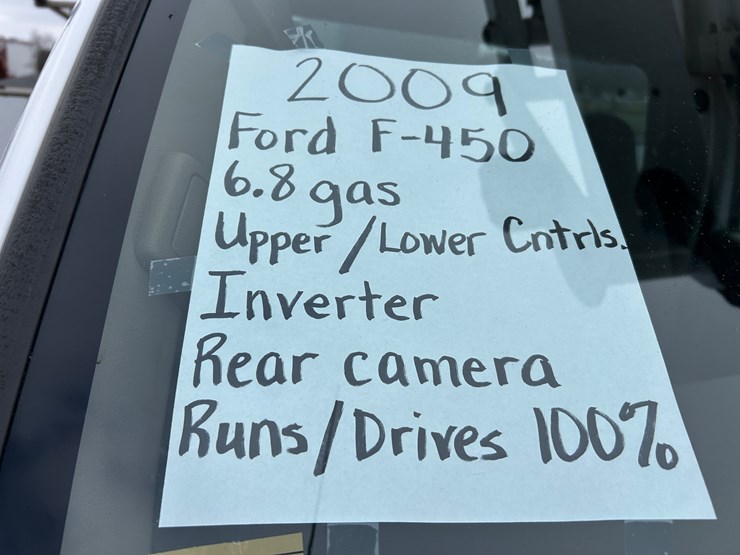 2009
Ford F-450
6.8 gas
Upper/Lower Cntrls.
Inverter
Rear camera
Runs/Drives 100%